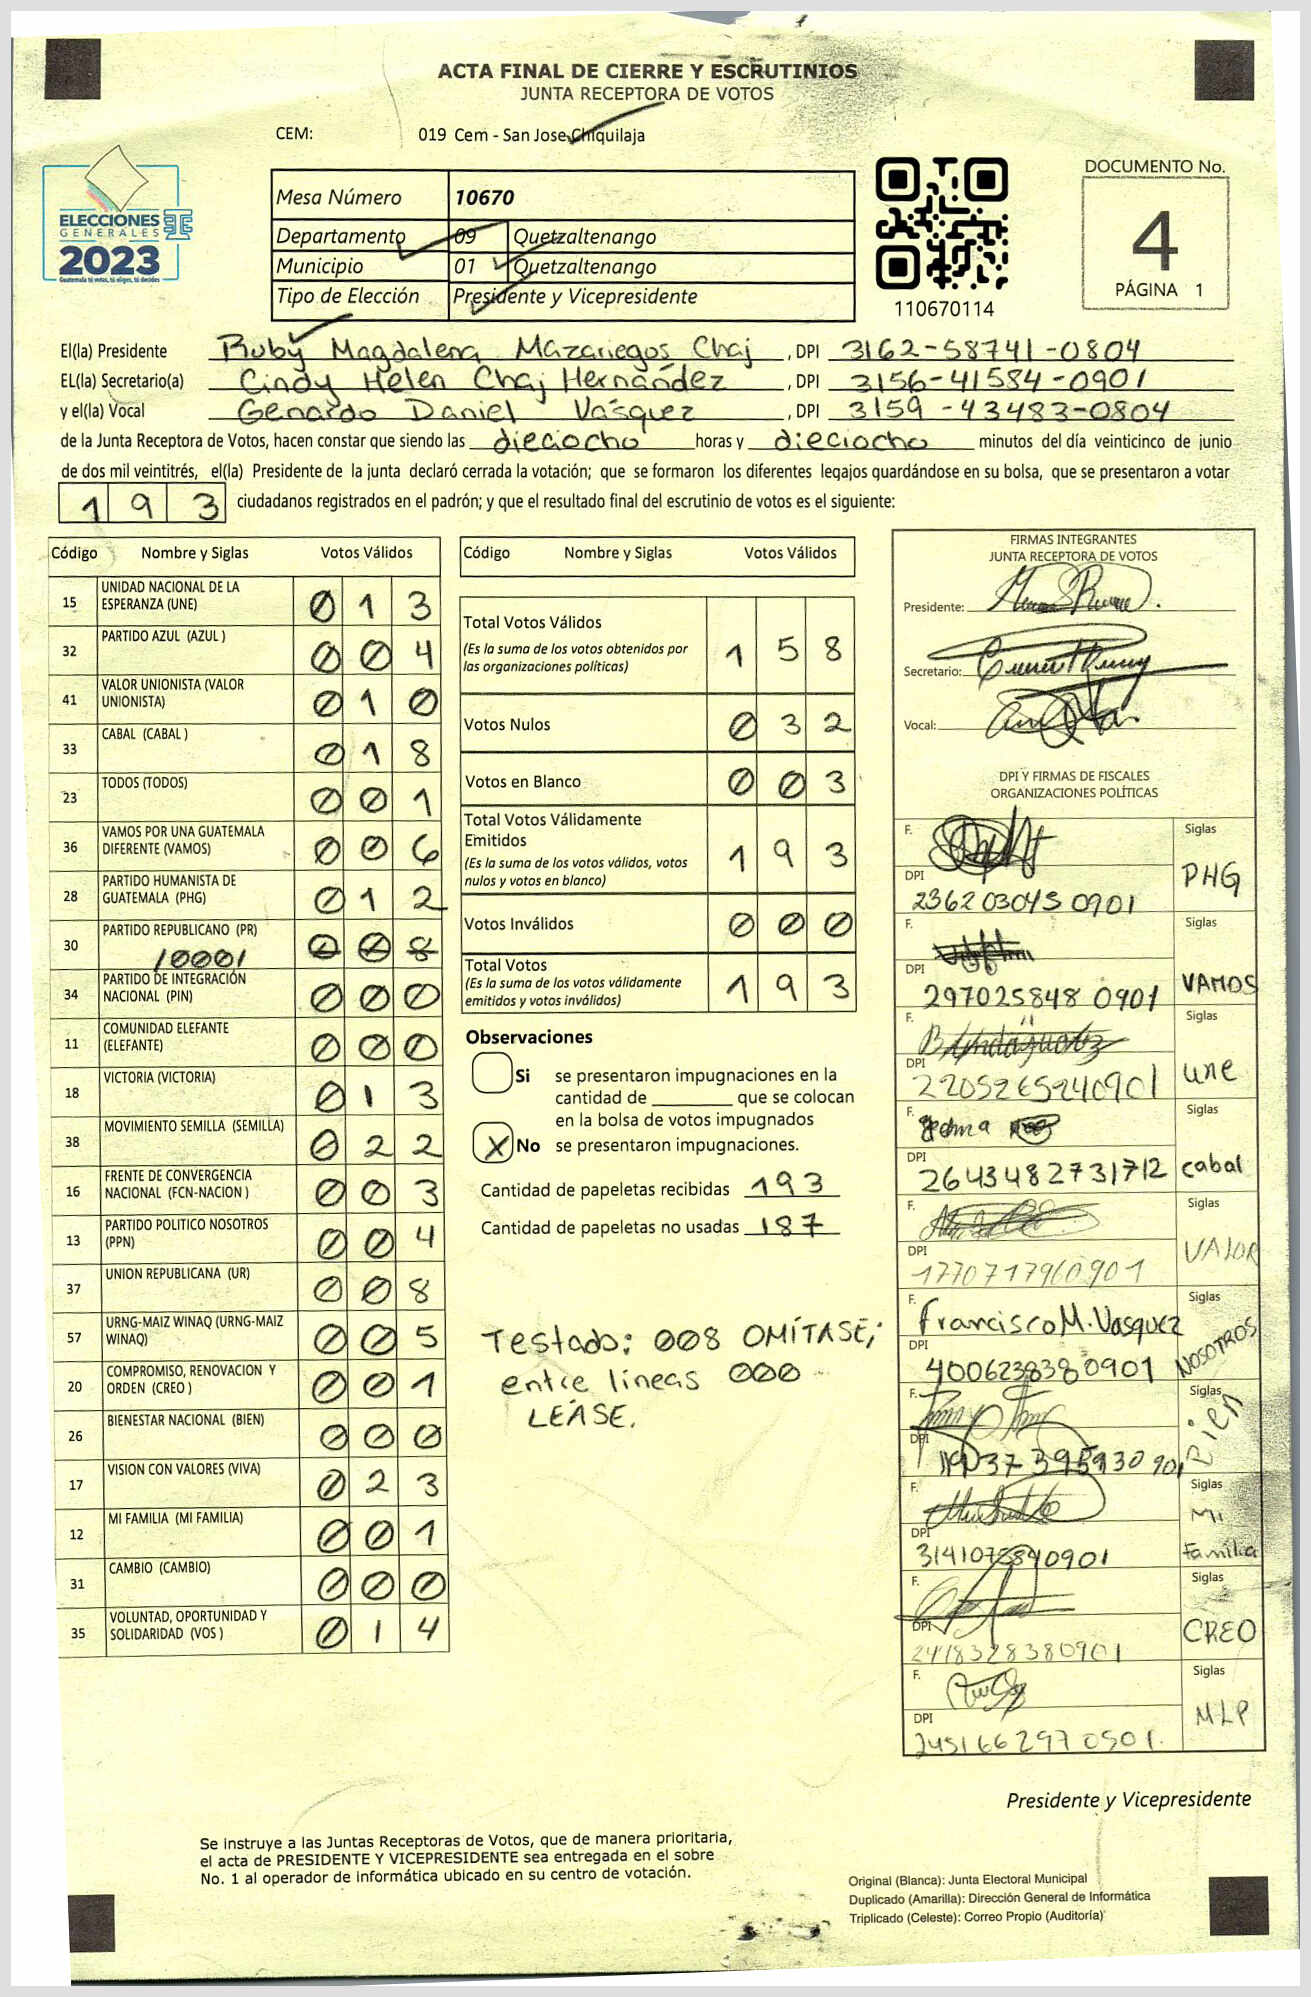 ACTA FINAL DE CIERRE Y ESCRUTINIOS
JUNTA RECEPTORA DE VOTOS
CEM: 019 Cem - San Jose Chiquilaja
ELECCIONES
GENERALES
2023
Guatemala tú votas, tú eliges, tú decides
Mesa Número 10670
Departamento 09 Quetzaltenango
Municipio 01 Quetzaltenango
Tipo de Elección Presidente y Vicepresidente
110670114
DOCUMENTO No.
4
PÁGINA 1
El(la) Presidente Ruby Magdalena Mazariegos Chaj , DPI 3162-58741-0804
EL(la) Secretario(a) Cindy Helen Chaj Hernández , DPI 3156-41584-0901
y el(la) Vocal Genardo Daniel Vásquez , DPI 3159-43483-0804
de la Junta Receptora de Votos, hacen constar que siendo las dieciocho horas y dieciocho minutos del día veinticinco de junio
de dos mil veintitrés, el(la) Presidente de la junta declaró cerrada la votación; que se formaron los diferentes legajos guardándose en su bolsa, que se presentaron a votar
193 ciudadanos registrados en el padrón; y que el resultado final del escrutinio de votos es el siguiente:
Código Nombre y Siglas Votos Válidos
15 UNIDAD NACIONAL DE LA ESPERANZA (UNE) 013
32 PARTIDO AZUL (AZUL ) 004
41 VALOR UNIONISTA (VALOR UNIONISTA) 010
33 CABAL (CABAL ) 018
23 TODOS (TODOS) 001
36 VAMOS POR UNA GUATEMALA DIFERENTE (VAMOS) 006
28 PARTIDO HUMANISTA DE GUATEMALA (PHG) 012
30 PARTIDO REPUBLICANO (PR) /000/ 008
34 PARTIDO DE INTEGRACIÓN NACIONAL (PIN) 000
11 COMUNIDAD ELEFANTE (ELEFANTE) 000
18 VICTORIA (VICTORIA) 013
38 MOVIMIENTO SEMILLA (SEMILLA) 022
16 FRENTE DE CONVERGENCIA NACIONAL (FCN-NACION ) 003
13 PARTIDO POLITICO NOSOTROS (PPN) 004
37 UNION REPUBLICANA (UR) 008
57 URNG-MAIZ WINAQ (URNG-MAIZ WINAQ) 005
20 COMPROMISO, RENOVACION Y ORDEN (CREO ) 001
26 BIENESTAR NACIONAL (BIEN) 000
17 VISION CON VALORES (VIVA) 023
12 MI FAMILIA (MI FAMILIA) 001
31 CAMBIO (CAMBIO) 000
35 VOLUNTAD, OPORTUNIDAD Y SOLIDARIDAD (VOS ) 014
Código Nombre y Siglas Votos Válidos
Total Votos Válidos 158
(Es la suma de los votos obtenidos por
las organizaciones políticas)
Votos Nulos 032
Votos en Blanco 003
Total Votos Válidamente
Emitidos 193
(Es la suma de los votos válidos, votos
nulos y votos en blanco)
Votos Inválidos 000
Total Votos 193
(Es la suma de los votos válidamente
emitidos y votos inválidos)
Observaciones
Si se presentaron impugnaciones en la
cantidad de ________ que se colocan
en la bolsa de votos impugnados
X No se presentaron impugnaciones.
Cantidad de papeletas recibidas 193
Cantidad de papeletas no usadas 187
Testado: 008 OMÍTASE;
entre líneas 000
LEASE.
FIRMAS INTEGRANTES
JUNTA RECEPTORA DE VOTOS
Presidente:
Secretario:
Vocal:
DPI Y FIRMAS DE FISCALES
ORGANIZACIONES POLÍTICAS
F. Siglas
DPI PHG
236203045 0901
F. Siglas
DPI VAMOS
297025848 0901
F. Siglas
DPI une
2205265240901
F. Siglas
DPI cabal
2643482731712
F. Siglas
DPI VALOR
1770717960901
F. Francisco M. Vasquez Siglas
DPI NOSOTROS
4006238380901
F. Siglas
DPI Bien
F. Siglas
DPI Mi Familia
3141075840901
F. Siglas
DPI CREO
2418328380901
F. Siglas
DPI MLP
2451662970901.
Presidente y Vicepresidente
Se instruye a las Juntas Receptoras de Votos, que de manera prioritaria,
el acta de PRESIDENTE Y VICEPRESIDENTE sea entregada en el sobre
No. 1 al operador de informática ubicado en su centro de votación.
Original (Blanca): Junta Electoral Municipal
Duplicado (Amarilla): Dirección General de Informática
Triplicado (Celeste): Correo Propio (Auditoría)